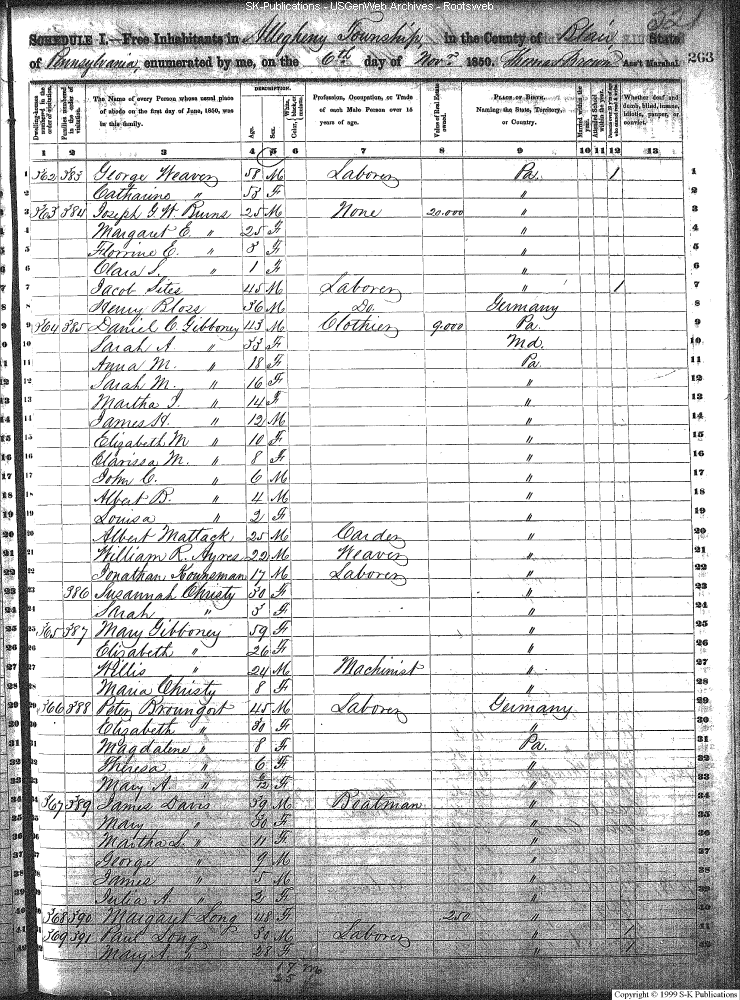 SK-Publications - USGenWeb Archives - Rootsweb
SCHEDULE I.—Free Inhabitants in Allegheny Township, in the County of Blair State
of Pennsylvania, enumerated by me, on the 6th day of Novr 1850. Thomas Brown Ass't Marshal. 263
Dwelling-houses numbered in the order of visitation. Families numbered in the order of visitation. The Name of every Person whose usual place of abode on the first day of June, 1850, was in this family. DESCRIPTION. Age. Sex. Profession, Occupation, or Trade of each Male Person over 15 years of age. Value of Real Estate owned. PLACE OF BIRTH. Naming the State, Territory, or Country. Married within the year. Attended School within the year. Whether deaf and dumb, blind, insane, idiotic, pauper, or convict.
1 2 3 4 5 6 7 8 9 10 11 12 13
1 362 383 George Weaver 58 M Laborer Pa. 1 1
2 Catharine " 53 F " 2
3 363 384 Joseph G. W. Burns 25 M None 20.000 " 3
4 Margaret E. " 25 F " 4
5 Florrine E. " 3 F " 5
6 Clara S. " 1 F " 6
7 Jacob Sites 45 M Laborer " 1 7
8 Henry Bloss 36 M Do. Germany 8
9 364 385 Daniel C. Gibboney 43 M Clothier 9.000 Pa. 9
10 Sarah A " 33 F Md. 10
11 Anna M. " 18 F Pa. 11
12 Sarah M. " 16 F " 12
13 Martha J. " 14 F " 13
14 James H. " 12 M " 14
15 Elizabeth M " 10 F " 15
16 Clarissa M. " 8 F " 16
17 John C. " 6 M " 17
18 Albert B. " 4 M " 18
19 Louisa " 2 F " 19
20 Albert Mattack 25 M Carder " 20
21 William R. Ayres 22 M Weaver " 21
22 Jonathan Kounsman 17 M Laborer " 22
23 386 Susannah Christy 30 F " 23
24 Sarah " 3 F " 24
25 365 387 Mary Gibboney 59 F " 25
26 Elizabeth " 26 F " 26
27 Willis " 24 M Machinist " 27
28 Maria Christy 8 F " 28
29 366 388 Peter Broungart 45 M Laborer Germany 29
30 Elizabeth " 30 F " 30
31 Magdalene " 8 F Pa. 31
32 Theresa " 6 F " 32
33 Mary A. " 6/12 F " 33
34 367 389 James Davis 39 M Boatman " 34
35 Mary " 30 F " 35
36 Martha S. " 11 F " 36
37 George " 9 M " 37
38 James " 5 M " 38
39 Julia A. " 2 F " 39
40 368 390 Margaret Long 48 F 250 " 40
41 369 391 Paul Long 30 M Laborer " 1 41
42 Mary A. " 28 F " 1 42
Copyright © 1999 S-K Publications